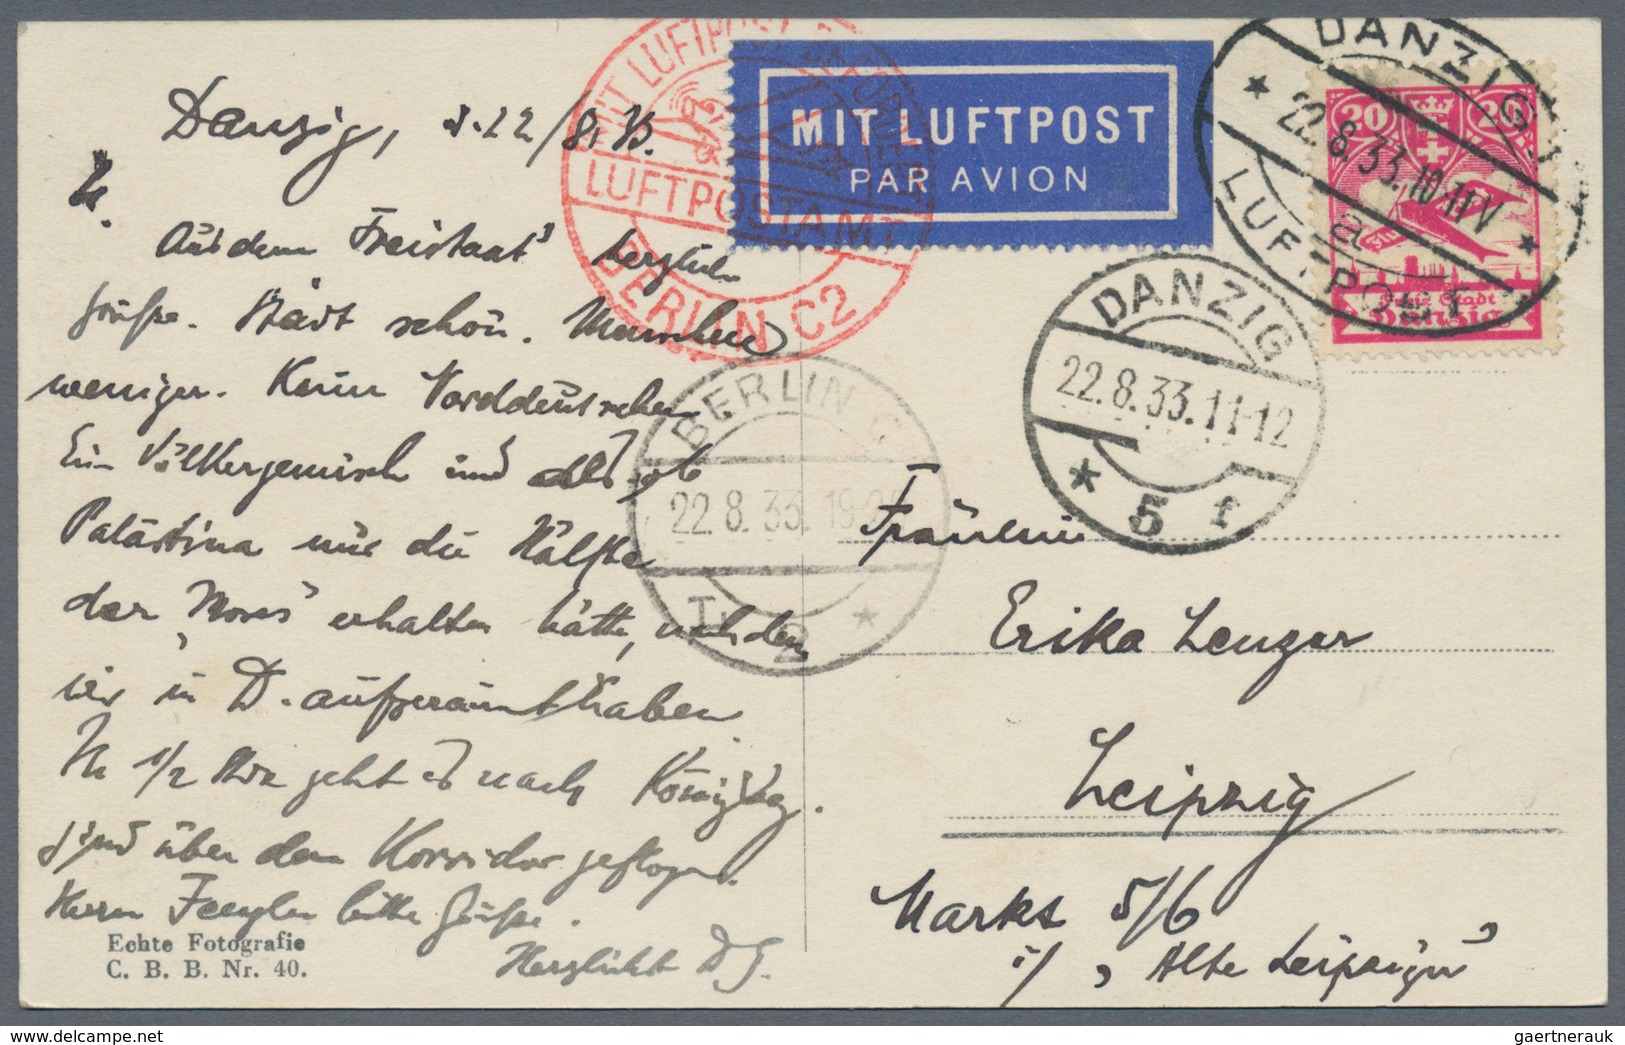 Danzig, d. 22/8. 33.
Aus dem „Freistaat" herzliche
Grüße. Stadt schön. Menschen
weniger. Keine Norddeutschen.
Ein Völkergemisch und als ob
Palästina nur die Hälfte
der „Moses" erhalten hätte, nachdem
wir in D. aufgeräumt haben.
In 1/2 Std. geht es nach Königsbg.
Sind über den Korridor geflogen.
Herrn bitte Grüße.
Herzlichst D G.
Echte Fotografie
C. B. B. Nr. 40.
MIT LUFTPOST BEFÖRDERT
LUFTPOSTAMT
BERLIN C2
MIT LUFTPOST
PAR AVION
DANZIG
* 22.8.33.10-11V *
a
LUFTPOST
20 20
Freie Stadt
Danzig
DANZIG
22.8.33.11-12
* 5 f
BERLIN C
22.8.33.19-20
2 *
Fräulein
Erika Lenzer
Leipzig
Markt 5/6
i/ „Alte Leipziger"
gaertnerauk
www.delcampe.net